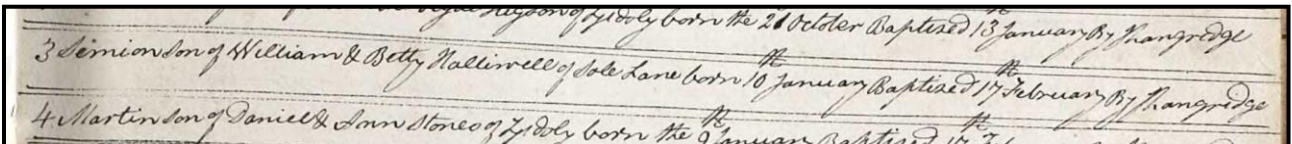 of Tyldsly born the 21 October Baptized 13th January By J Langridge
3 Simion Son of William & Betty Halliwell of Sole Lane born 10th January Baptized 17th February By J Langridge
4 Martin Son of Daniel & Ann Stones of Tyldoly born the 9th January Baptized 17th